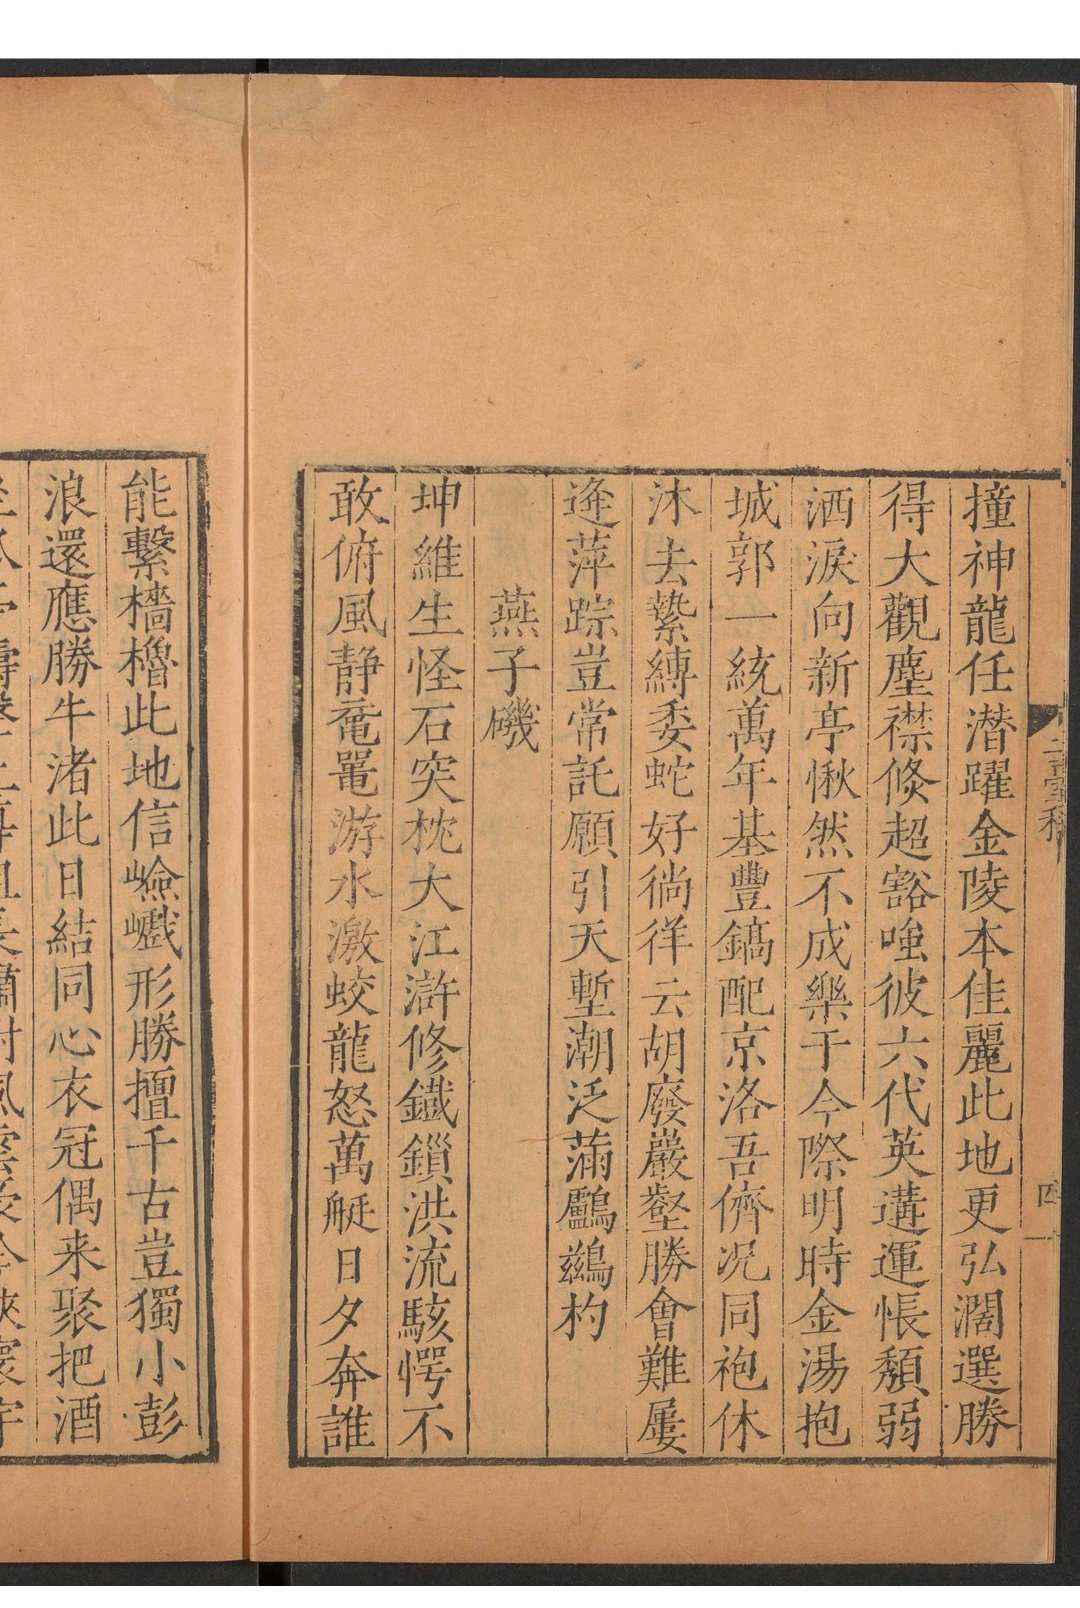 撞神龍任潜躍金陵本佳麗此地更弘濶選勝
得大觀塵襟倐超豁嗤彼六代英遘運悵頽弱
洒淚向新亭愀然不成樂于今際明時金湯抱
城郭一統萬年基豐鎬配京洛吾儕况同袍休
沐去縶縛委蛇好徜徉云胡廢巖壑勝會難屢
逄萍踪豈常託願引天塹潮泛蒲鸕鶿杓
燕子磯
坤維生怪石突枕大江滸修鐵鎖洪流駭愕不
敢俯風静黿鼍游水激蛟龍怒萬艇日夕奔誰
能繫檣櫓此地信嶮巇形勝擅千古豈獨小彭
浪還應勝牛渚此日結同心衣冠偶来聚把酒
四